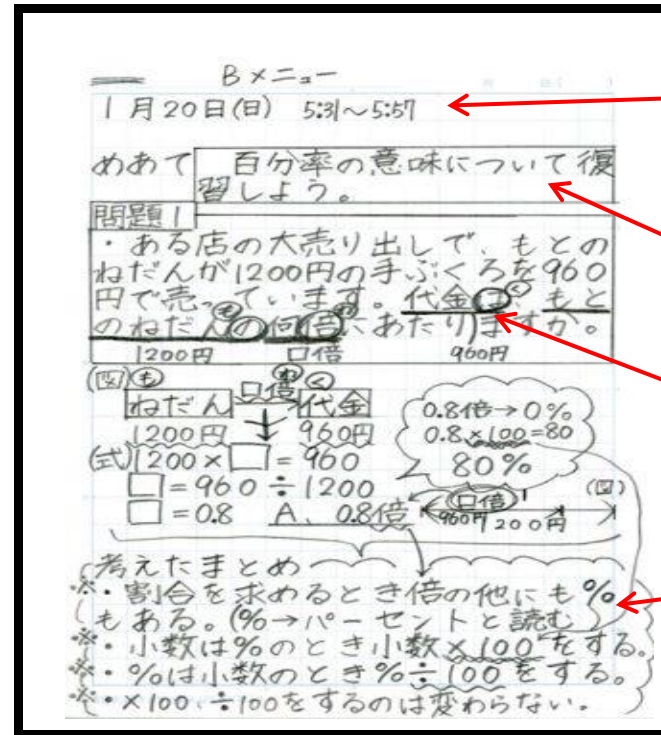 Bメニュー
1月20日(日) 5:31〜5:57
めあて 百分率の意味について復
習しよう。
問題1
・ある店の大売り出しで、もとの
ねだんが1200円の手ぶくろを960
円で売っています。代金は、もと
のねだんの何倍にあたりますか。
1200円 □倍 960円
(図) も □倍 わ く
ねだん 代金
1200円 960円
(式) 1200×□=960
□=960÷1200
□=0.8 A、0.8倍
0.8倍→0%
0.8×100=80
80%
□倍 1 (図)
960円 1200円
考えたまとめ
※・割合を求めるとき倍の他にも%
もある。(%→パーセントと読む
※・小数は%のとき小数×100をする。
※・%は小数のとき%÷100をする。
※・×100、÷100をするのは変わらない。